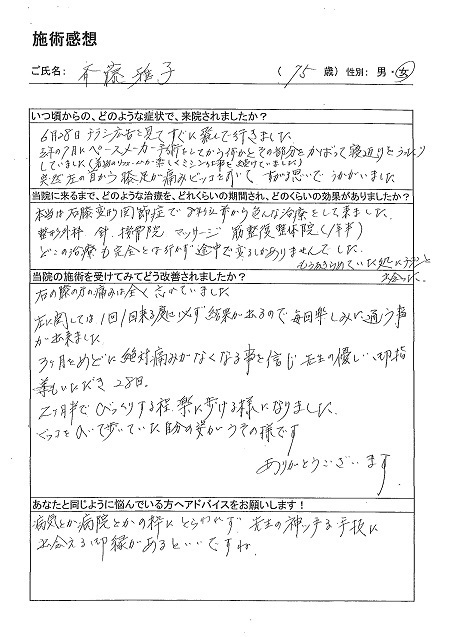 施術感想
ご氏名: 斉藤雅子 (75歳) 性別: 男・女
いつ頃からの、どのような症状で、来院されましたか?
6月28日チラシ広告を見てすぐに飛んで行きました
年の7月にペースメーカー手術をしてから何かとその部分をかばって寝返りとうつ
していました
突然左の首から膝足が痛みビッコを引いて すがる思いでうかがいました
当院に来るまで、どのような治療を、どれくらいの期間され、どのくらいの効果がありましたか?
本当は右膝変形関節症で から色んな治療をして来ました。
整形外科 針、接骨院 マッサージ 筋整復整体院(1年半)
どこの治療も完全とは行かず途中で変るしかありませんでした。
もうあきらめていた処にチラシと
出会った。
当院の施術を受けてみてどう改善されましたか?
右の膝の方の痛みは全く忘れていました
左に関しては1回1回来る度に必ず結果が出るので毎回楽しみに通う事
が出来ました
3ヶ月をめどに絶対痛みがなくなる事を信じ先生の優しい御指
導もいただき28日。
2ヶ月半でびっくりする程、楽に歩ける様になりました
ビッコをひいて歩いていた自分の姿がうその様です
ありがとうございます。
あなたと同じように悩んでいる方へアドバイスをお願いします!
病気とか病院とかの枠にとらわれず 先生の神ッテる手技に
出会える御縁があるといいですね。